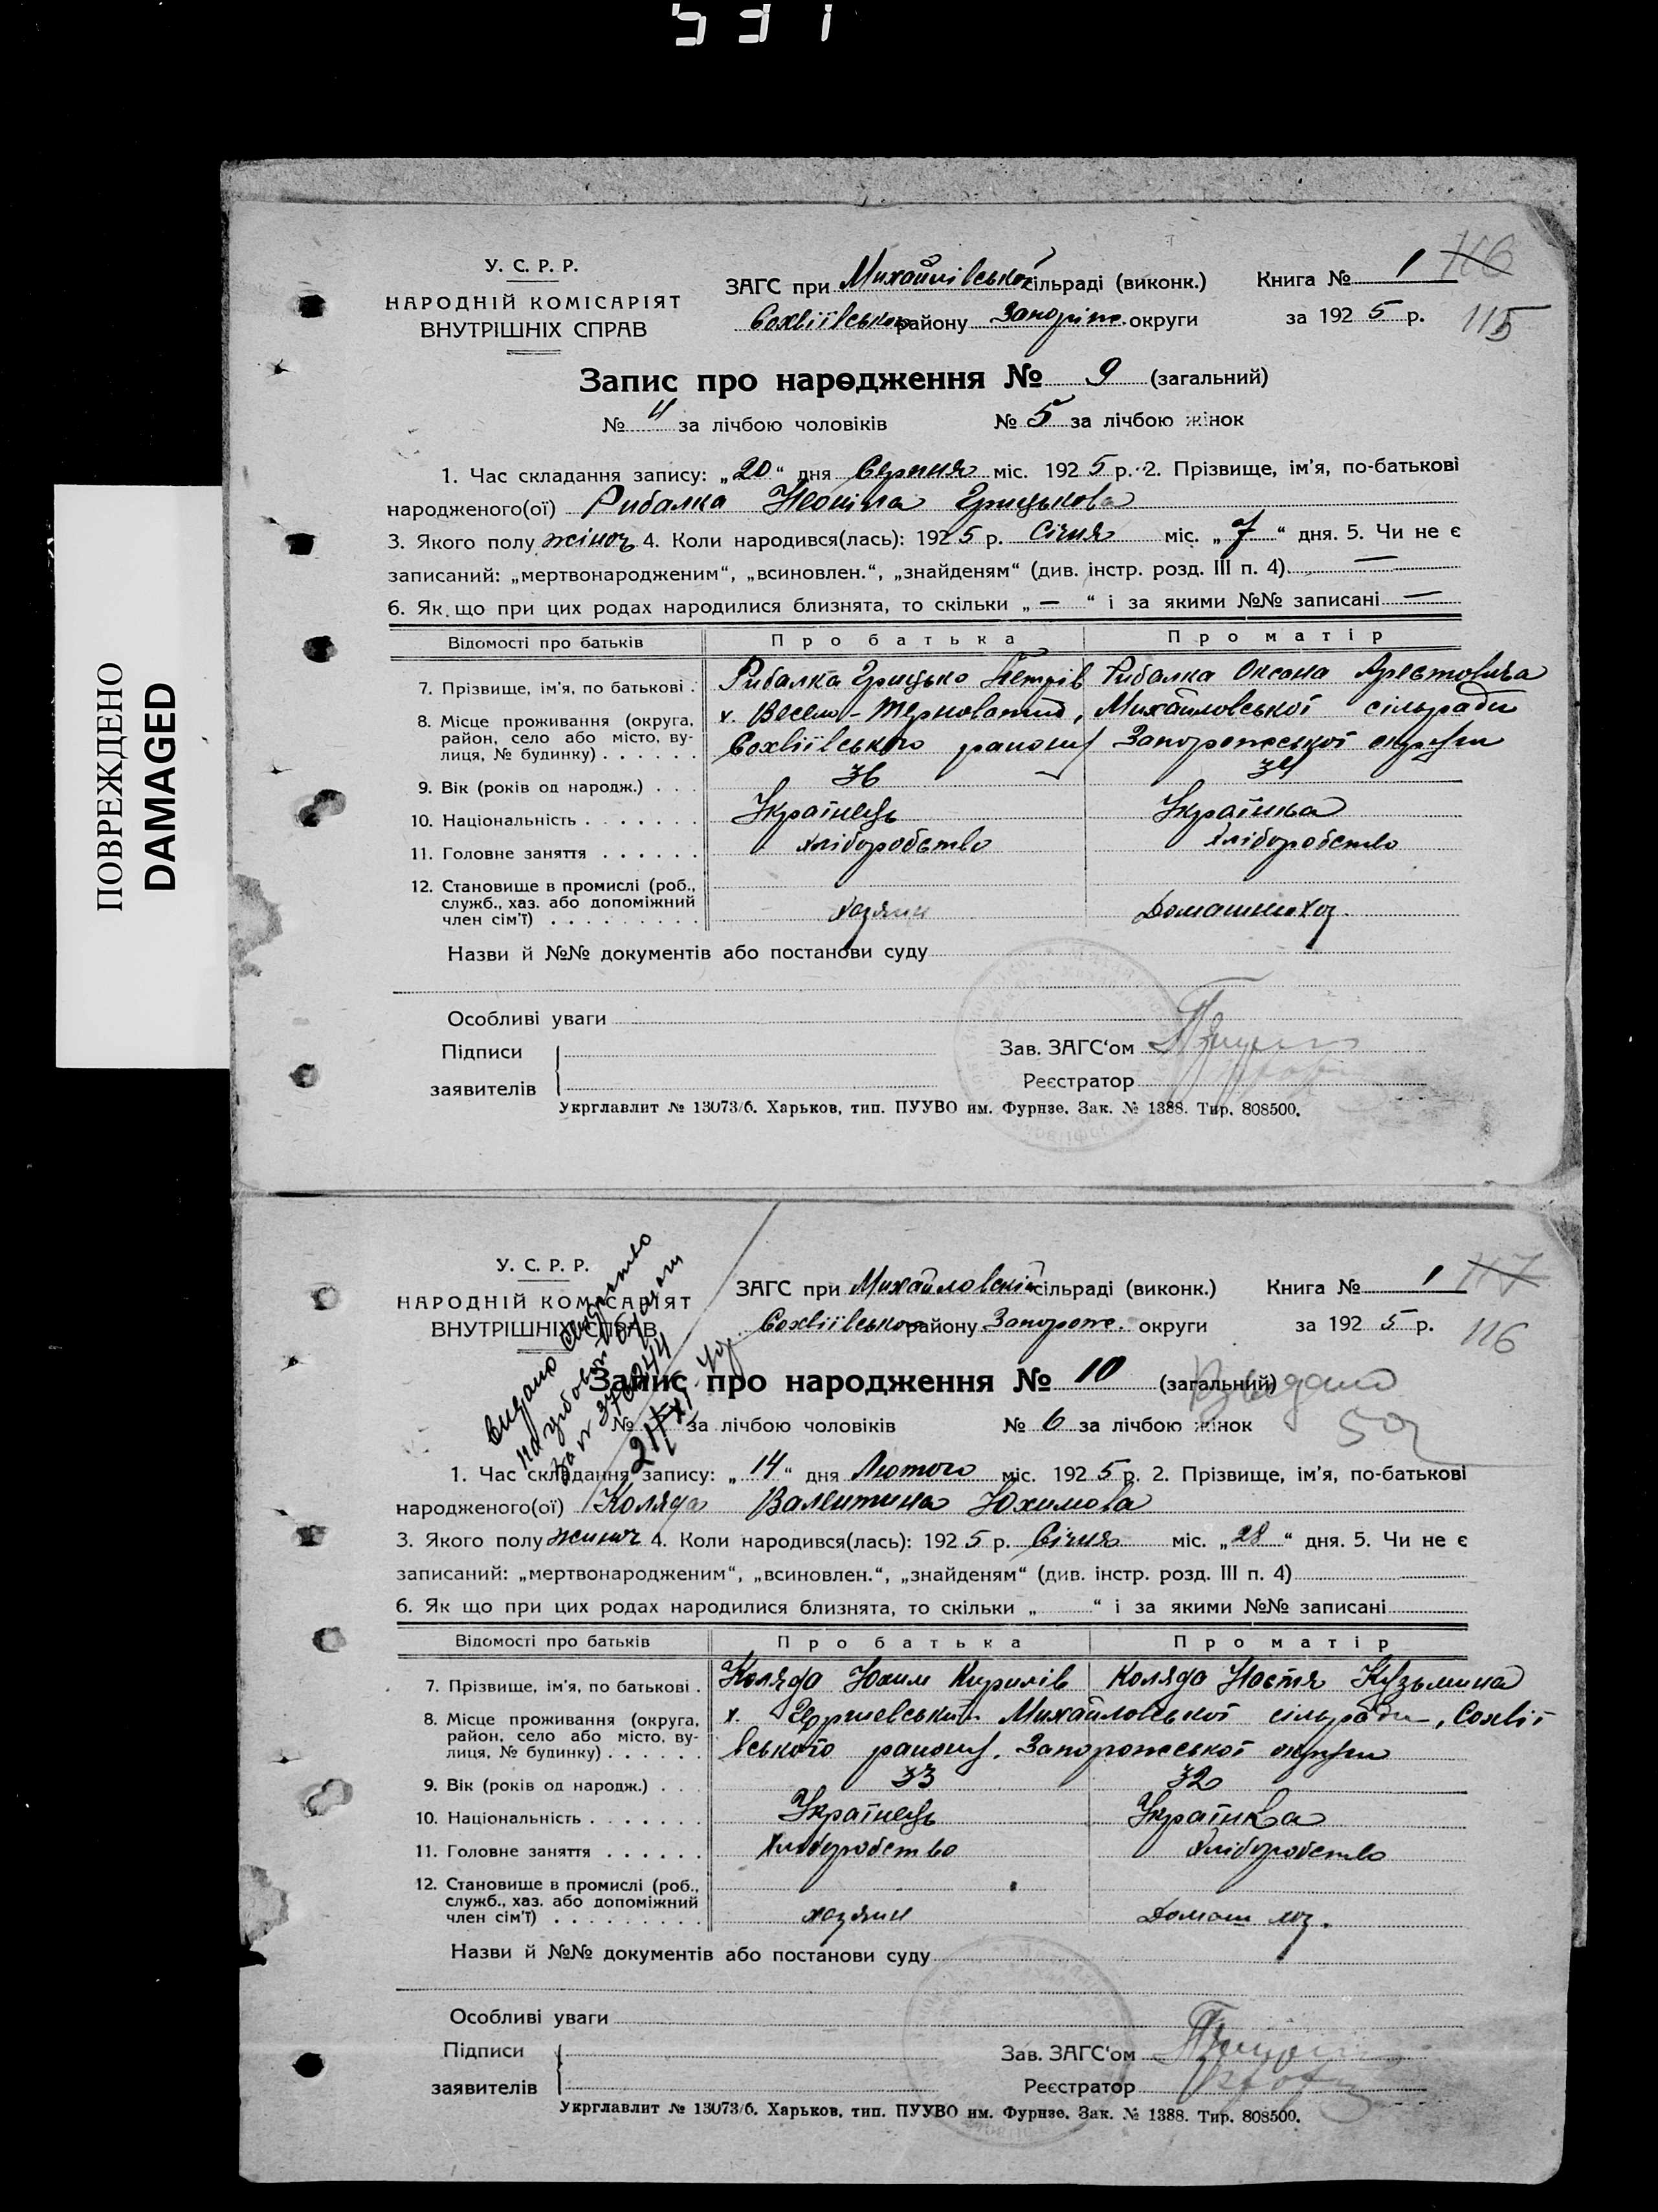 531
ПОВРЕЖДЕНО
DAMAGED
У. С. Р. Р.
НАРОДНІЙ КОМІСАРІЯТ
ВНУТРІШНІХ СПРАВ
ЗАГС при Михайлівської сільраді (виконк.) Книга № 1 116
Софіївського району Запоріж. округи за 1925 р. 115
Запис про народження № 9 (загальний)
№ 4 за лічбою чоловіків № 5 за лічбою жінок
1. Час складання запису: „20“ дня Серпня міс. 1925 р. 2. Прізвище, ім’я, по-батькові
народженого(ої) Рибалка Неоніла Грицькова
3. Якого полу жіноч 4. Коли народився(лась): 1925 р. Січня міс. „7“ дня. 5. Чи не є
записаний: „мертвонародженим“, „всиновлен.“, „знайденям“ (див. інстр. розд. III п. 4). —
6. Як що при цих родах народилися близнята, то скільки „—“ і за якими №№ записані —
Відомості про батьків Про батька Про матір
7. Прізвище, ім’я, по батькові . Рибалка Грицько Петрів Рибалка Оксана
8. Місце проживання (округа, х. Весело-Терноватий, Михайловської сільради
район, село або місто, ву-
лиця, № будинку) . . . . . . Софіївського району Запорожської округи
9. Вік (років од народж.) . . . 36 34
10. Національність . . . . . . . Українець Українка
11. Головне заняття . . . . . . Хліборобство Хліборобство
12. Становище в промислі (роб.,
служб., хаз. або допоміжний
член сім’ї) . . . . . . . . . хазяин Домашнє хоз.
Назви й №№ документів або постанови суду
Особливі уваги
Підписи Зав. ЗАГС‘ом
заявителів Реєстратор
Укрглавлит № 13073/6. Харьков, тип. ПУУВО им. Фурнзе. Зак. № 1388. Тир. 808500.
У. С. Р. Р.
НАРОДНІЙ КОМІСАРІЯТ
ВНУТРІШНІХ СПРАВ
Видано свідоцтво
на
за №
21/XI
ЗАГС при Михайловскій сільраді (виконк.) Книга № 1 117
Софіївського району Запорож. округи за 1925 р. 116
Запис про народження № 10 (загальний)
№ за лічбою чоловіків № 6 за лічбою жінок
1. Час складання запису: „14“ дня Лютого міс. 1925 р. 2. Прізвище, ім’я, по-батькові
народженого(ої) Коляда Валентина Юхимова
3. Якого полу жиноч 4. Коли народився(лась): 1925 р. Січня міс. „28“ дня. 5. Чи не є
записаний: „мертвонародженим“, „всиновлен.“, „знайденям“ (див. інстр. розд. III п. 4)
6. Як що при цих родах народилися близнята, то скільки „ “ і за якими №№ записані
Відомості про батьків Про батька Про матір
7. Прізвище, ім’я, по батькові . Коляда Юхим Кирилів Коляда Настя Кузьмина
8. Місце проживання (округа, х. Михайловської сільради, Софії
район, село або місто, ву-
лиця, № будинку) . . . . . . вського району, Запорожської округи
9. Вік (років од народж.) . . . 33 32
10. Національність . . . . . . . Українець Українка
11. Головне заняття . . . . . . Хліборобство Хліборобство
12. Становище в промислі (роб.,
служб., хаз. або допоміжний
член сім’ї) . . . . . . . . . хазяин Домаш хоз.
Назви й №№ документів або постанови суду
Особливі уваги
Підписи Зав. ЗАГС‘ом
заявителів Реєстратор
Укрглавлит № 13073/6. Харьков, тип. ПУУВО им. Фурнзе. Зак. № 1388. Тир. 808500.